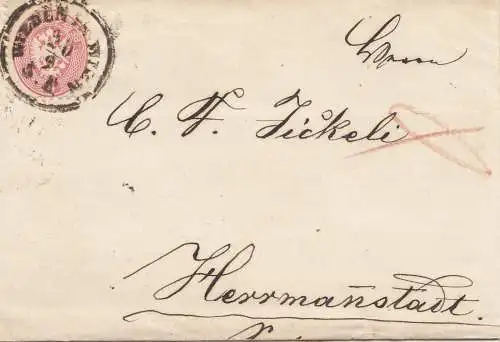 WIEDEN in WIEN
20
9
Herrn
C. F. Jickeli
Herrmañstadt.